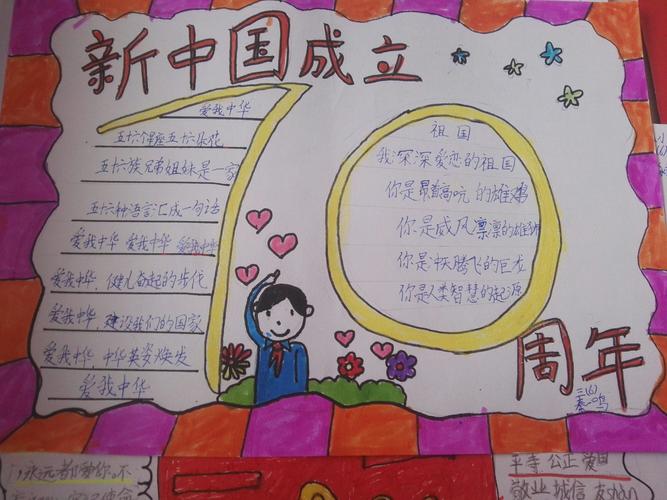 新中国成立
70
周年
爱我中华
五十六个星座五十六朵花
五十六族兄弟姐妹是一家
五十六种语言汇成一句话
爱我中华 爱我中华 爱我中华
爱我中华, 健儿奋起的步伐
爱我中华, 建设我们的国家
爱我中华 中华英姿焕发
爱我中华
祖国
我深深爱恋的祖国
你是昂首高吭的雄鸡
你是威风凛凛的雄狮
你是腾飞的巨龙
你是人类智慧的起源
三(6)
秦一鸣
永远都爱你。不
平等 公正 爱国
敬业 诚信 友